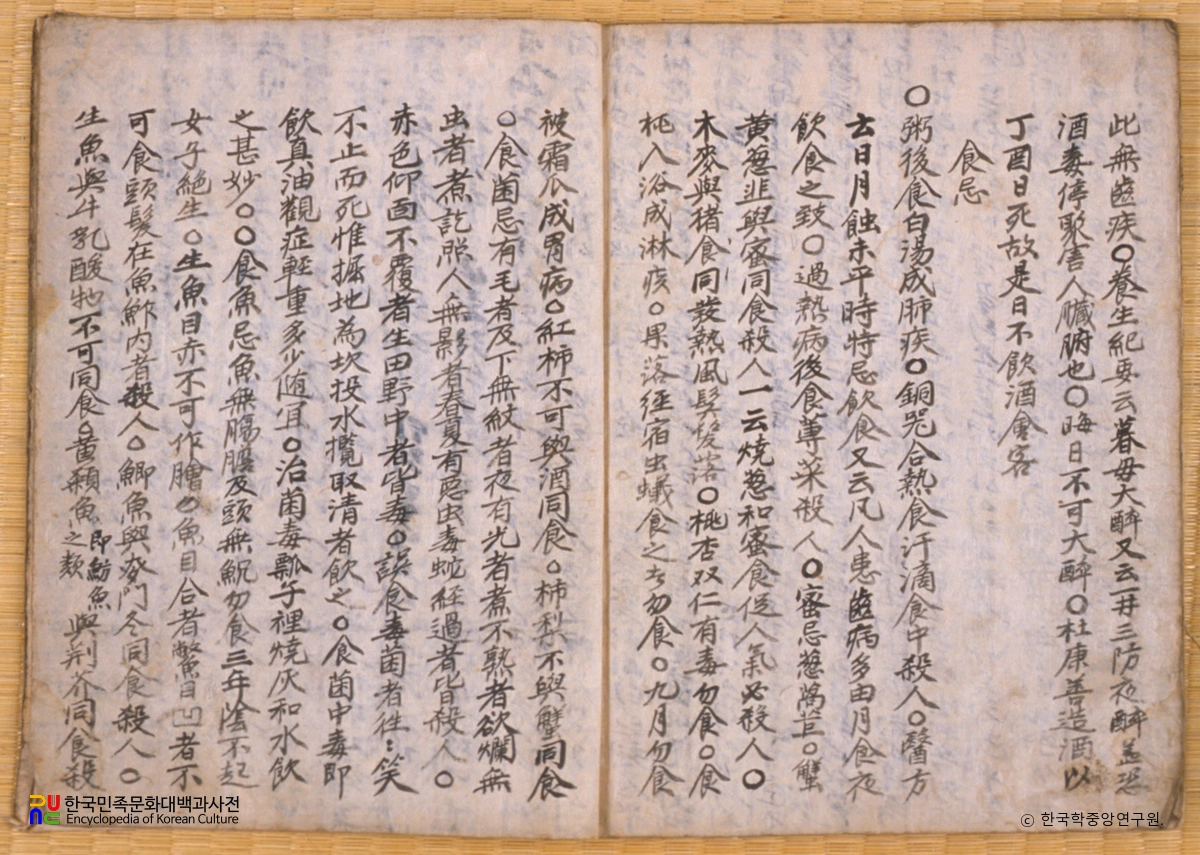 此無齒疾〇養生紀要云暮毋大醉又云一井三防夜醉盖恐
酒毒停聚害人臟腑也〇晦日不可大醉〇杜康善造酒以
丁酉日死故是日不飲酒會客
食忌
〇粥後食白湯成肺疾〇銅器合熱食汗滴食中殺人〇醫方
云日月蝕未平時特忌飲食又云凡人患齒病多由月食夜
飲食之致〇過熱病後食蓴菜殺人〇蜜忌葱萵苣〇蟹
黄葱韮與蜜同食殺人一云燒葱和蜜食促人氣必殺人〇
木麥與猪食同發熱風髮落〇桃杏双仁有毒勿食〇食
桃入浴成淋疾〇果落徑宿虫蟻食之者勿食〇九月勿食
被霜瓜成胃病〇紅柿不可與酒同食〇柿梨不與蟹同食
〇食菌忌有毛者及下無紋者夜有光者煮不熟者欲爛無
虫者煮訖照人無影者春夏有惡虫毒蛇経過者皆殺人〇
赤色仰面不覆者生田野中者皆毒〇誤食毒菌者徃〻笑
不止而死惟掘地為坎投水攪取清者飲之〇食菌中毒即
飲真油觀症輕重多少随宜〇治菌毒瓢子裡燒灰和水飲
之甚妙〇〇食魚忌魚無膓膽及頭無魫勿食三年陰不起
女子絶生〇生魚目赤不可作膾〇魚目合者鱉目凹者不
可食頭髮在魚鮓内者殺人〇鯽魚與麥門冬同食殺人〇
生魚與牛乳酸物不可同食〇黄顙魚即魴魚之類與荆芥同食殺
한국민족문화대백과사전
Encyclopedia of Korean Culture
ⓒ 한국학중앙연구원